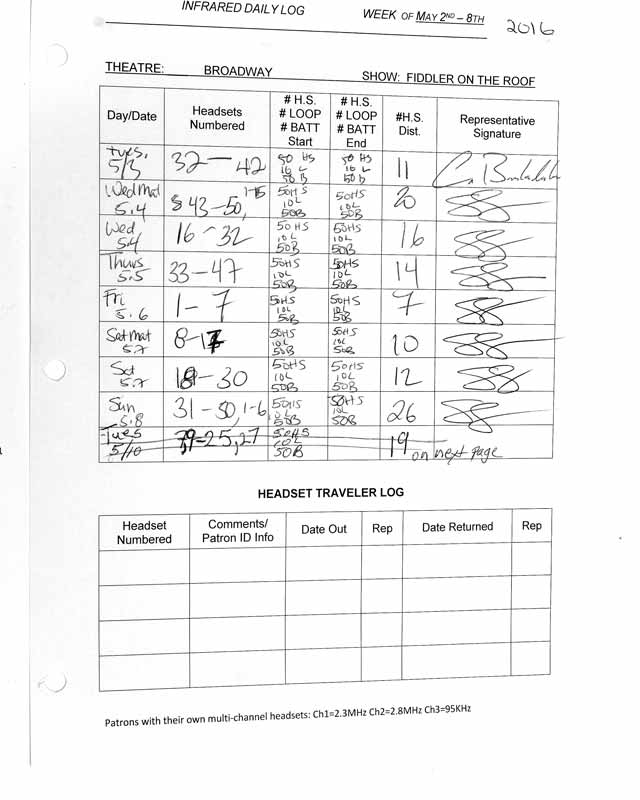 INFRARED DAILY LOG WEEK OF MAY 2ND – 8TH 2016
THEATRE: BROADWAY SHOW: FIDDLER ON THE ROOF
Day/Date Headsets Numbered # H.S. # LOOP # BATT Start # H.S. # LOOP # BATT End #H.S. Dist. Representative Signature
Tues, 5/3 32 – 42 50 HS 16 L 50 B 50 HS 16 L 50 B 11
Wed Mat 5.4 43-50, 1-15 50HS 10L 50B 50HS 10L 50B 20
Wed 5.4 16-32 50HS 10L 50B 50HS 10L 50B 16
Thurs 5.5 33-47 50HS 10L 50B 50HS 10L 50B 14
Fri 5.6 1-7 50HS 10L 50B 50HS 10L 50B 7
Sat Mat 5.7 8-17 50HS 10L 50B 50HS 10L 50B 10
Sat 5.7 18-30 50HS 10L 50B 50HS 10L 50B 12
Sun 5.8 31-50, 1-6 50HS 10L 50B 50HS 10L 50B 26
Tues 5/10 7,9-25, 27 50HS 10L 50B 19 on next page
HEADSET TRAVELER LOG
Headset Numbered Comments/ Patron ID Info Date Out Rep Date Returned Rep
Patrons with their own multi-channel headsets: Ch1=2.3MHz Ch2=2.8MHz Ch3=95KHz